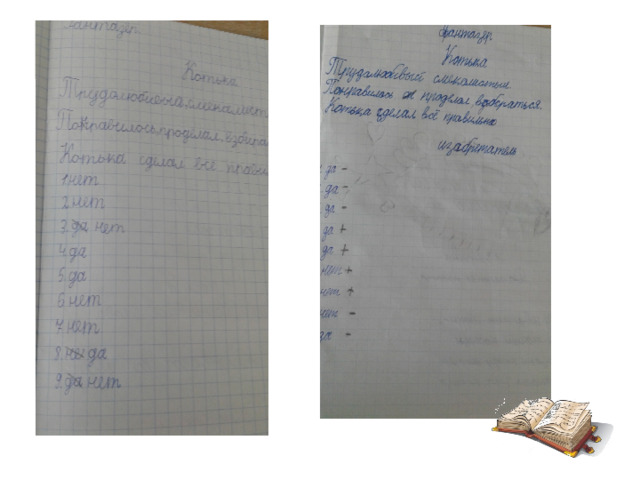 Фантазёр.
Котька
Трудолюбивая,
Понравилось, проделал, взбира
Котька сделал всё прави
1.нет
2.нет
3.да нет
4.да
5.да
6.нет
7.нет
8. да
9.да нет
Фантазёр.
Котька
Трудолюбивый
Понравилось проделал, взбераться
Котька сделал всё правильно
изабретатель
да -
да -
да -
да +
да +
нет +
нет +
нет -
да -